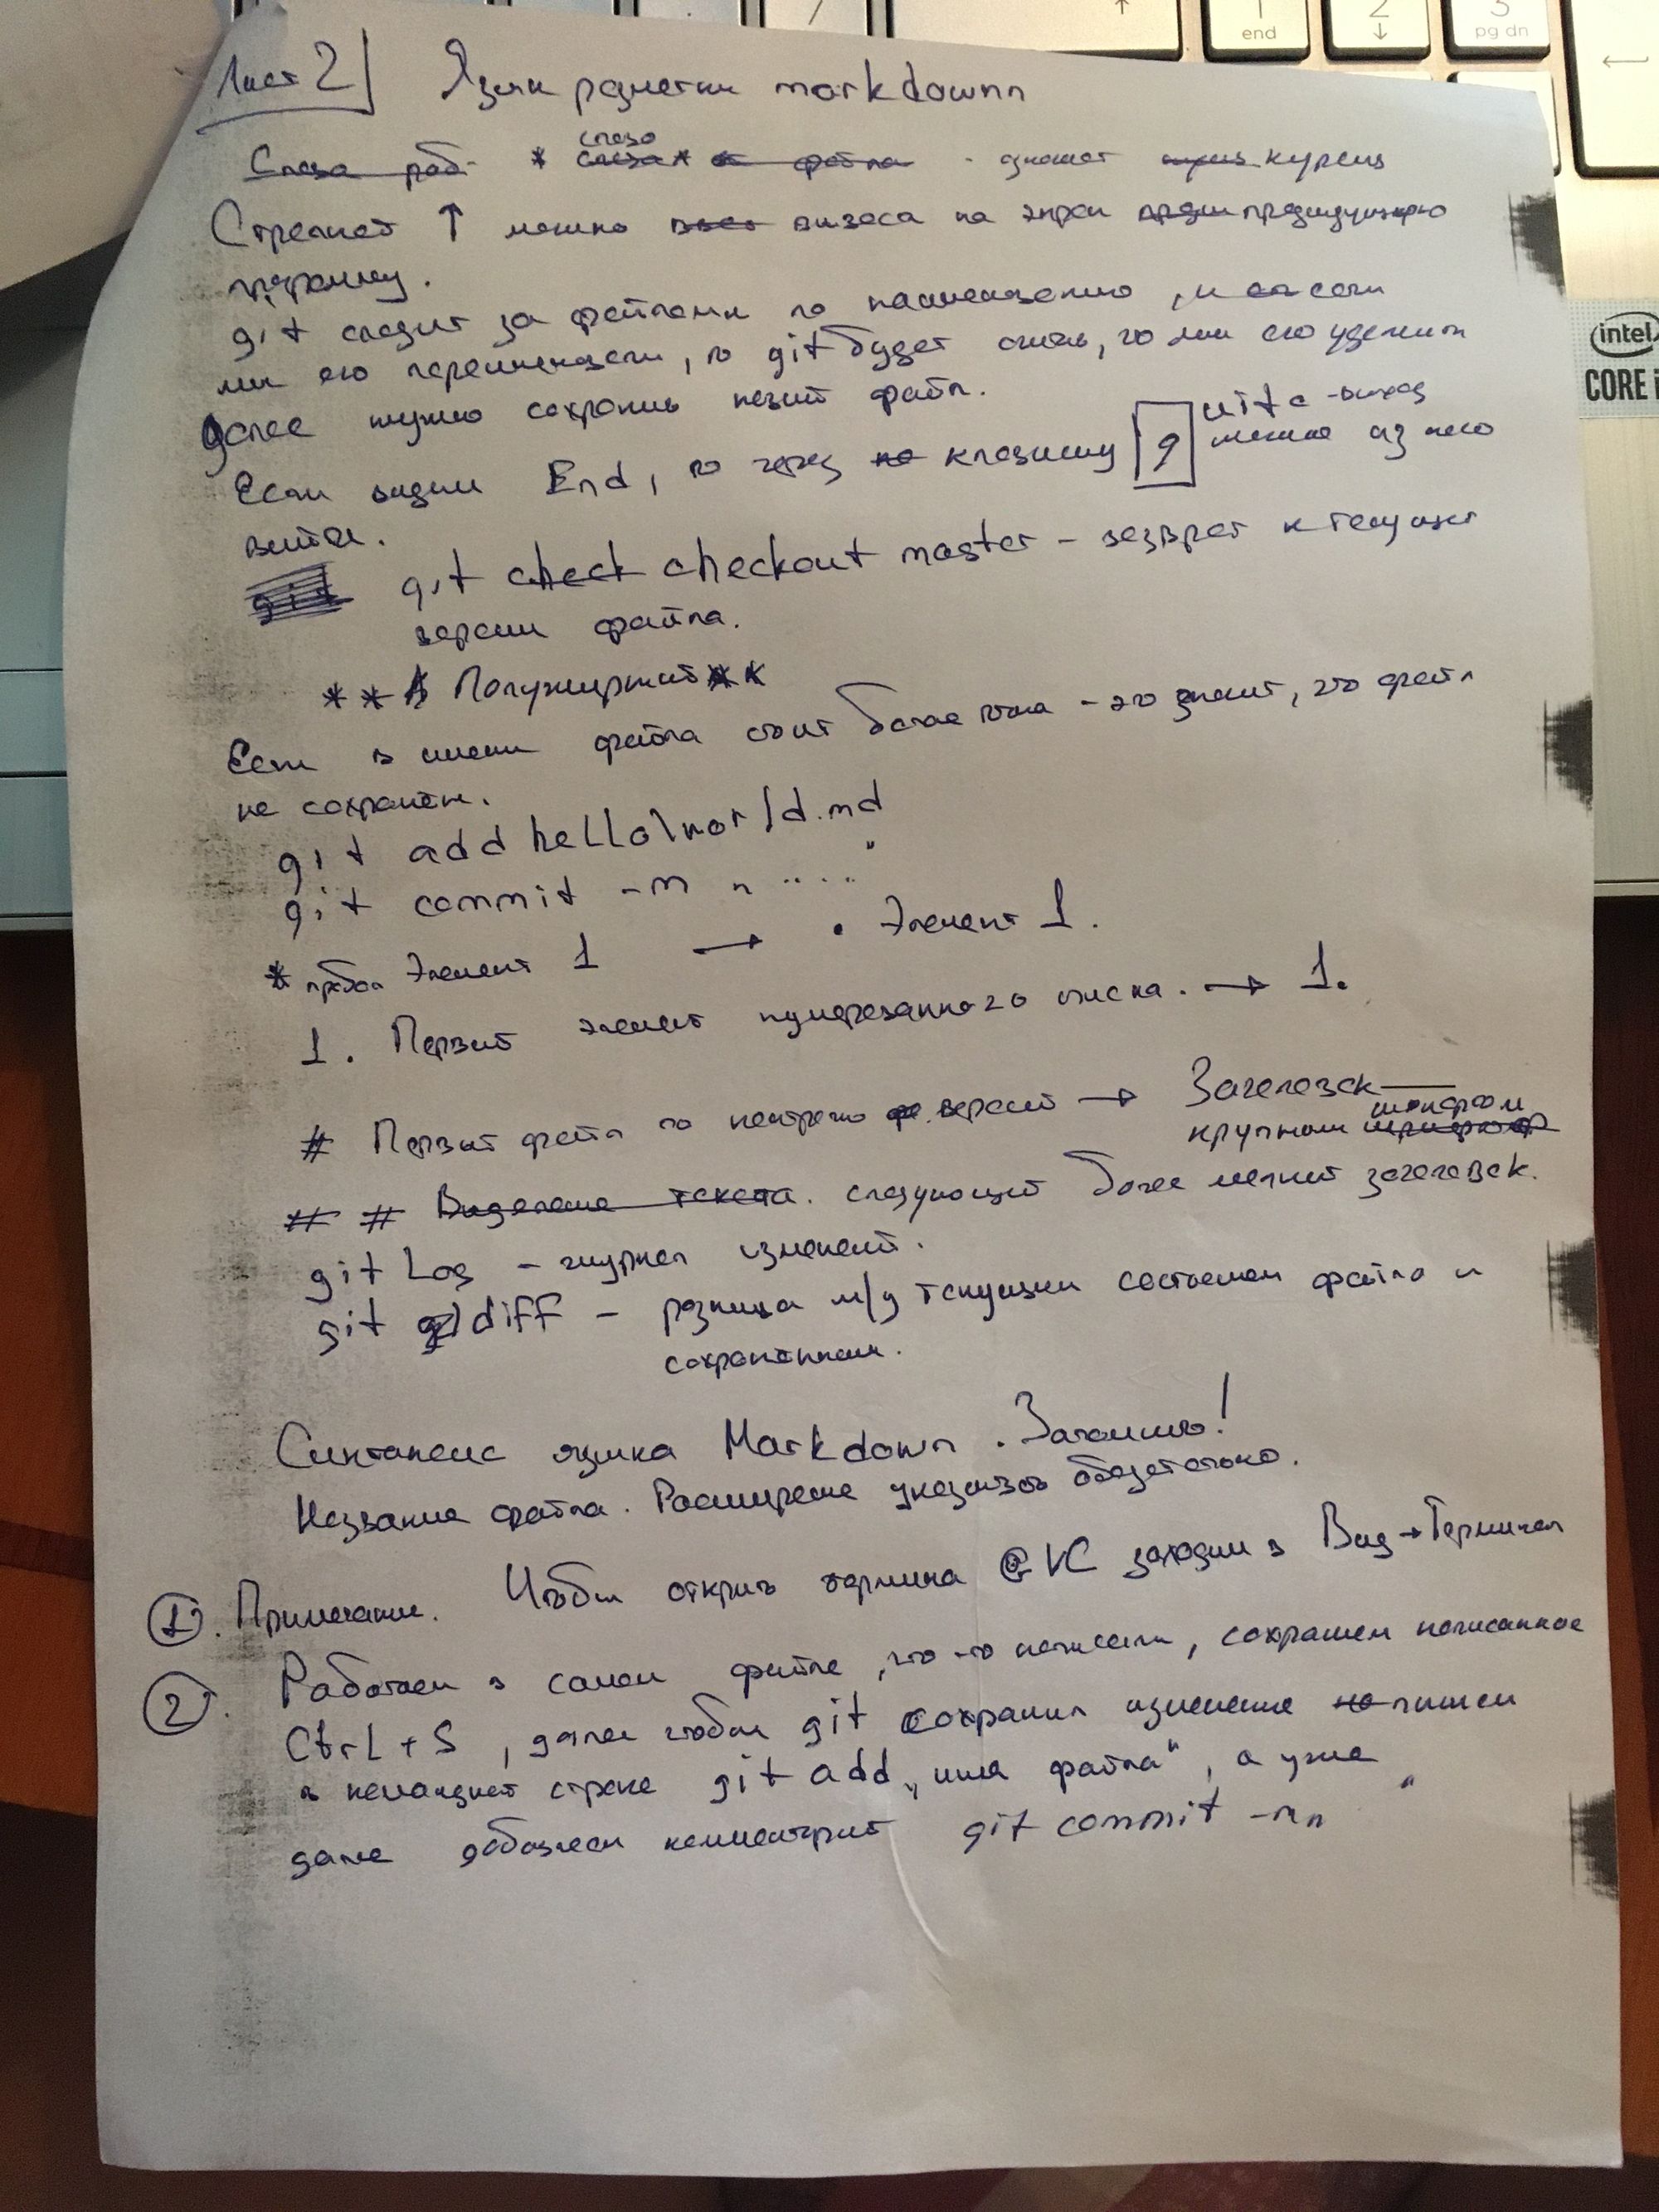 end
2
3
pg dn
intel
CORE i
Лист 2 Язык разметки markdownn
Слева раб * слово слово * к файла - значает курсив
Стрелкой ↑ можно вызвать на экран предыдущую
программу.
git следит за файлами по наименованию, и если
мы его переименовали, то git будет считать, что мы его удалили
далее нужно сохранить новый файл.
Если видим End, то через клавишу q можно из него
выйти.
git check checkout master - возврат к текущей
версии файла.
** Полужирный **
Если в имени файла стоит белая точка - это значит, что файл
не сохранён.
git add hello\world.md
git commit -m " .... "
* пробел Элемент 1 → • Элемент 1.
1. Первый элемент нумерованного списка. → 1.
# Первый файл по контролю версий → Заголовок
крупным шрифтом
# # Выделение текста. следующий более мелкий заголовок.
git Log - журнал изменений.
git diff - разница м/д текущим состоянием файла и
сохраненным.
Синтаксис языка Markdown. Запомнить!
Название файла. Расширение указывать обязательно.
1. Примечание. Чтобы открыть термина VC заходим в Вид → Терминал
2. Работаем в самом файле, что-то написали, сохраняем написанное
Ctrl + S, далее чтобы git сохранил изменение пишем
в командной строке git add „имя файла“, а уже
далее добавляем комментарий git commit -m „ “